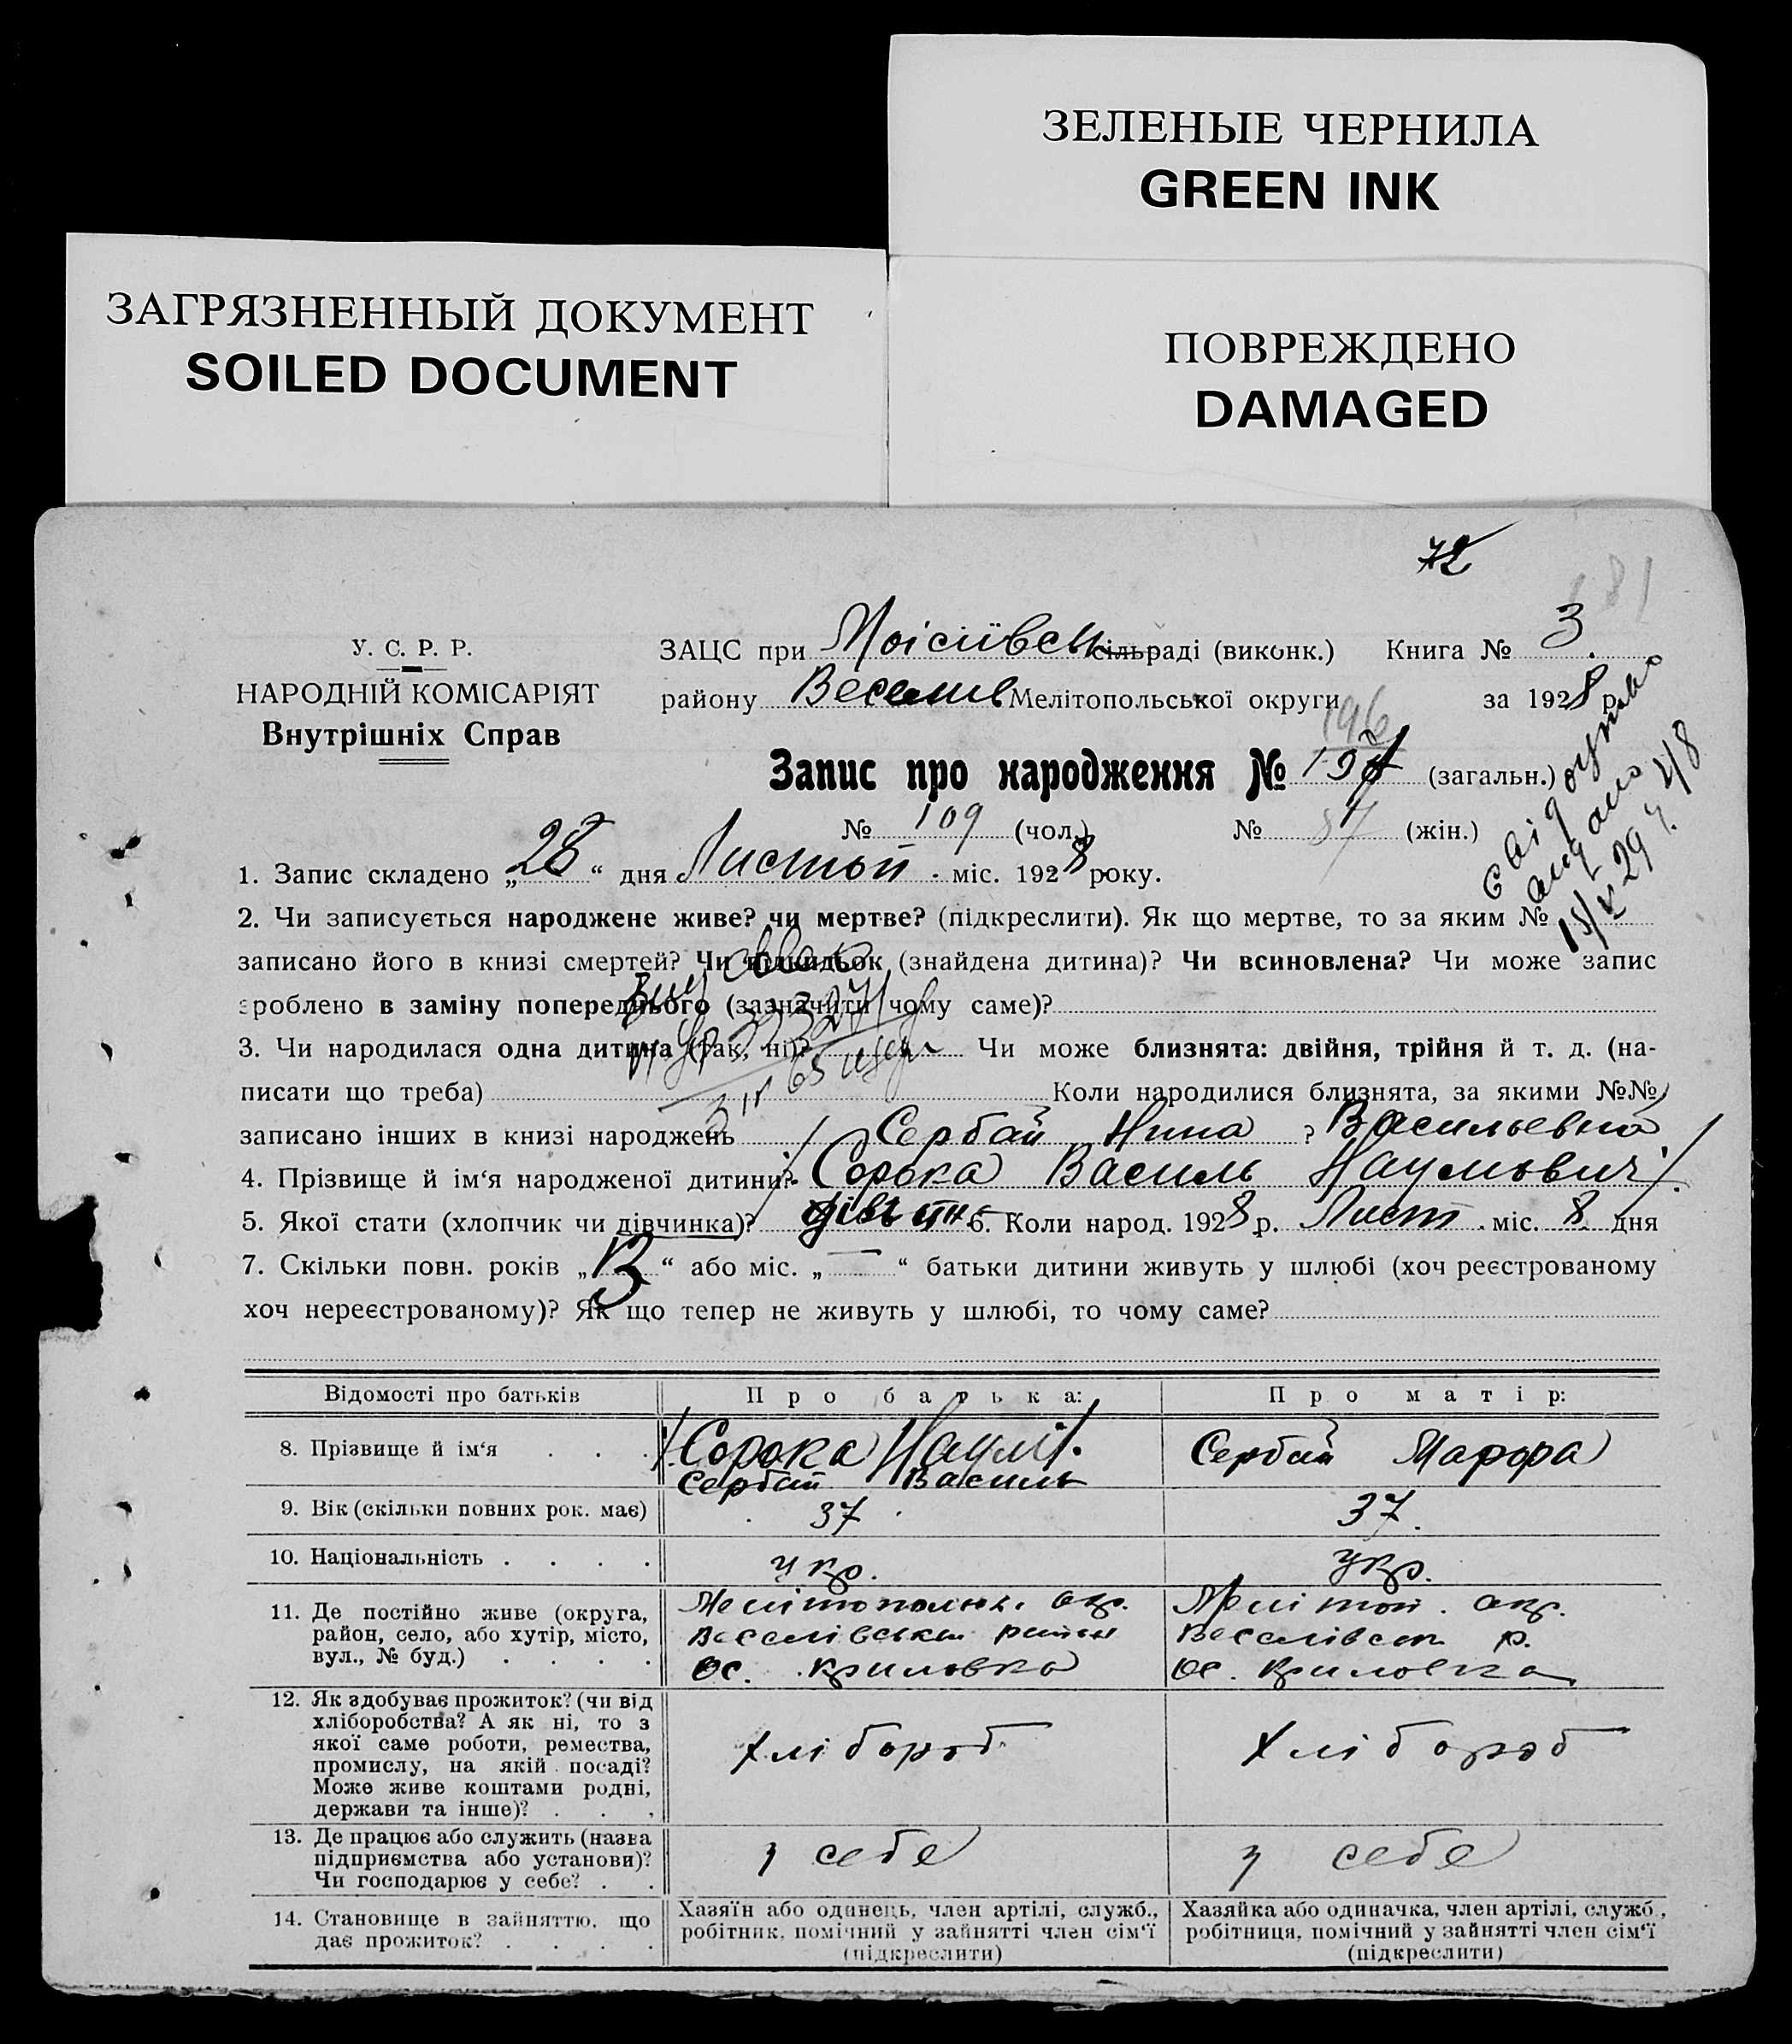 ЗЕЛЕНЫЕ ЧЕРНИЛА
GREEN INK
ЗАГРЯЗНЕННЫЙ ДОКУМЕНТ
SOILED DOCUMENT
ПОВРЕЖДЕНО
DAMAGED
72
181
У. С. Р. Р.
НАРОДНІЙ КОМІСАРІЯТ
Внутрішніх Справ
ЗАЦС при Моісіівськ сільраді (виконк.) Книга № 3.
району Веселів Мелітопольської округи за 1928 р.
196
Запис про народження № 197 (загальн.)
№ 109 (чол.) № 87 (жін.)
15/V 29
1. Запис складено „28“ дня Листоп. міс. 1928 року.
2. Чи записується народжене живе? чи мертве? (підкреслити). Як що мертве, то за яким №
записано його в книзі смертей? Чи підкидьок (знайдена дитина)? Чи всиновлена? Чи може запис
зроблено в заміну попереднього (зазначити чому саме)?
3. Чи народилася одна дитина (так, ні)? Чи може близнята: двійня, трійня й т. д. (на-
писати що треба) Коли народилися близнята, за якими №№
записано інших в книзі народжень Сербай Нина ? Васильевна
4. Прізвище й ім‘я народженої дитини? Сорока Василь Наумович
5. Якої стати (хлопчик чи дівчинка)? 6. Коли народ. 1928 р. Лист. міс. 8 дня
7. Скільки повн. років „13“ або міс. „—“ батьки дитини живуть у шлюбі (хоч реєстрованому
хоч нереєстрованому)? Як що тепер не живуть у шлюбі, то чому саме?
Відомості про батьків Про батька: Про матір:
8. Прізвище й ім‘я Сорока Наум. Сербай Марфа
Сербай Василь
9. Вік (скільки повних рок. має) 37 37.
10. Національність укр. укр.
11. Де постійно живе (округа, район, село, або хутір, місто, вул., № буд.)
Мелітопольк. окр. Мелітоп. окр.
Веселівськи район Веселівськ р.
Ос. Криловка Ос. Криловка
12. Як здобуває прожиток? (чи від
хліборобства? А як ні, то з
якої саме роботи, ремества,
промислу, на якій посаді?
Може живе коштами родні,
держави та інше)?
Хлібороб Хлібороб
13. Де працює або служить (назва
підприємства або установи)?
Чи господарює у себе?
у себе у себе
14. Становище в зайняттю, що
дає прожиток?
Хазяїн або одинець, член артілі, служб.,
робітник, помічний у зайнятті член сім‘ї
(підкреслити)
Хазяйка або одиначка, член артілі, служб.,
робітниця, помічний у зайнятті член сім‘ї
(підкреслити)